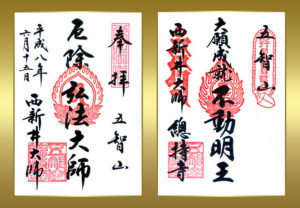 五智山
大願成就
不動明王
西新井大師
總持寺
奉拝
五智山
厄除
弘法大師
平成八年
六月十五日
西新井大師